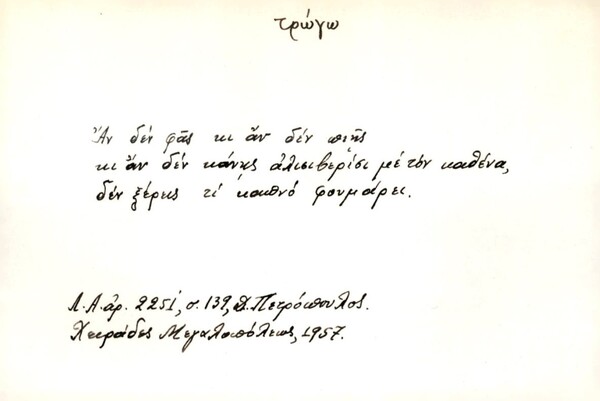 τρώγω
Ἄν δέν φᾶς κι ἄν δέν πιῇς
κι ἄν δέν κάνῃς ἀλισιβερίσι μέ τόν καθένα,
δέν ξέρεις τί καπνό φουμάρει.
Λ.Α. ἀρ. 2251, σ. 139, Δ. Πετρόπουλος.
Χειράδες Μεγαλοπόλεως, 1957.